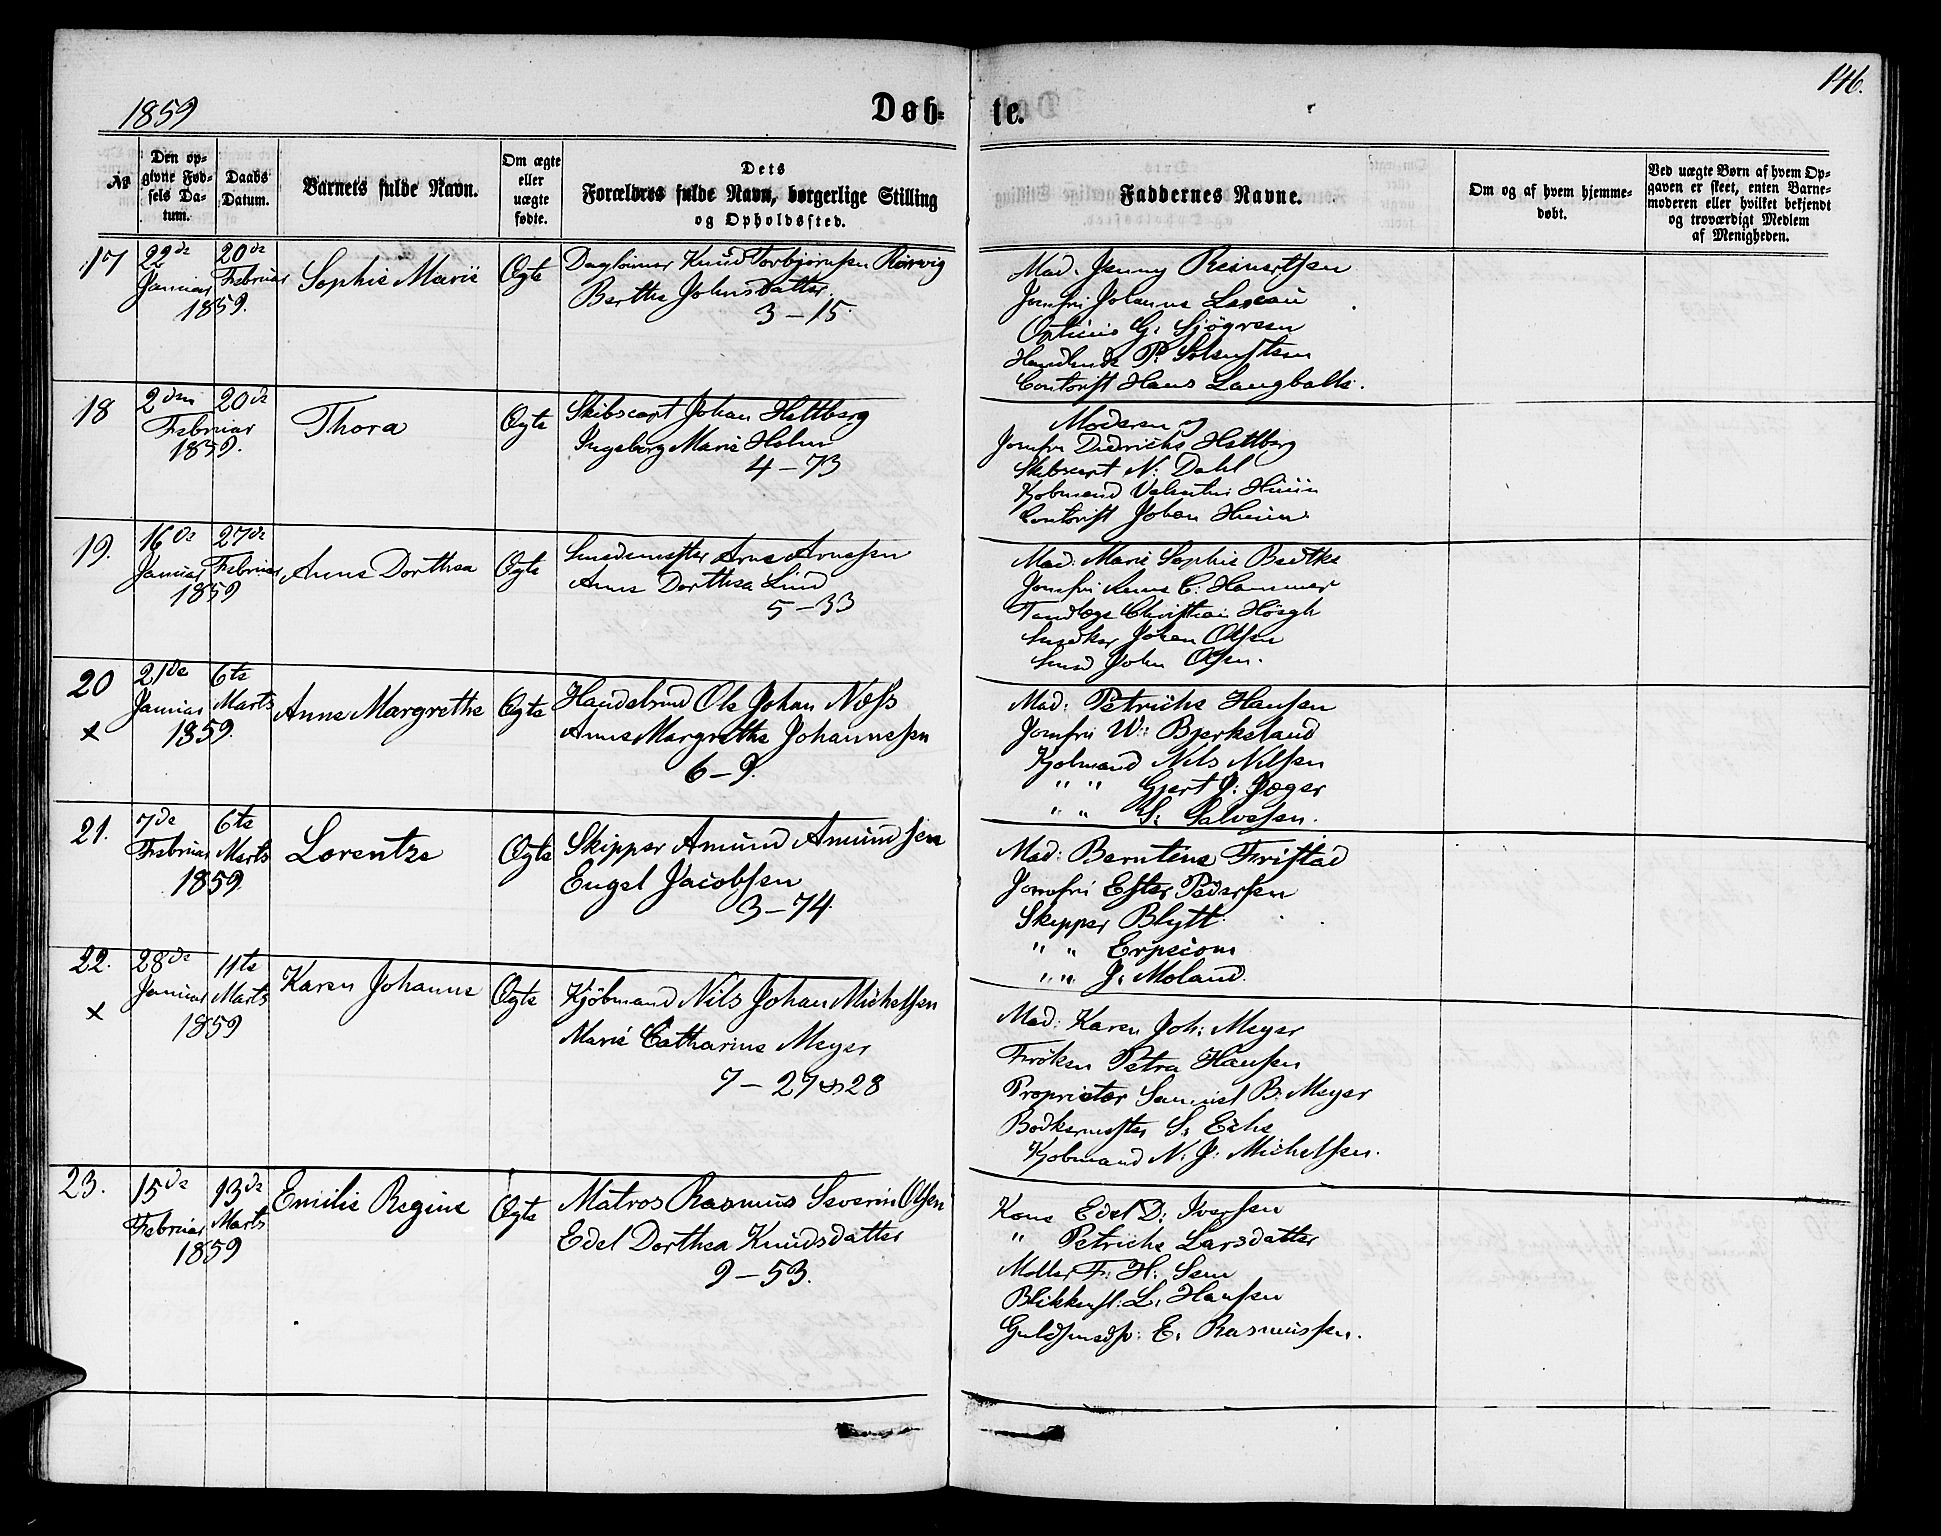 1859
Døb=
te.
146.
№
Den op-
givne Fød-
sels Da-
tum.
Daabs
Datum.
Barnets fulde Navn.
Om ægte
eller
uægte
fødte.
Dets
Forældres fulde Navn, borgerlige Stilling
og Opholdssted.
Faddernes Navne.
Om og af hvem hjemme-
døbt.
Ved uægte Børn af hvem Op-
gaven er skeet, enten Barne-
moderen eller hvilket bekjendt
og troværdigt Medlem
af Menigheden.
17
22de
Januar
20de
Februar
1859.
Sophie Marie
Ægte
Dagleiner Knud Torbjørnsen Rørvig
Berthe Johnsdatter.
3-15.
Mad. Jenny Reinertsen
Jomfru Johanne
G. Sjøgreen
P.
Contorist Hans Langballe.
18
2den
20de
Februar
1859.
Thora
Ægte
Skibscapt Johan Hettberg
Ingeborg Marie Holm
4-73
Moderen og
Jomfru Diedricke Hettberg
Skibscapt N. Dahl
Kjøbmand Valentin
Contorist Johan
19.
16de
Januar
27de
Februar
1859
Anne Dorthea
Ægte
Smedemester Arne Arnesen
Anne Dorthea Lind
5-33
Mad: Marie Sophie Bedtke
Jomfru Anne C. Hammer
Tandlæge Christian Høegh
Snedker Johan Olsen
Smed John Olsen.
20
x
21de
Januar
6te
Marts
1859.
Anne Margrethe
Ægte
Handelsmd Ole Johan Næss
Anne Margrethe Johannessen
6-9.
Mad: Petricke Hansen
Jomfru W: Bjerkeland
Kjøbmand Nils Nilsen
" " Gjert J: Jæger
" " S: Salvesen.
21.
7de
Februar
6te
Marts
1859.
Lorentze
Ægte
Skipper Amund Amundsen
Engel Jacobsen
3-74.
Mad: Berntine Fristad
Jomfru Ester Pedersen
Skipper Blytt
" " Erpecom
" " J: Moland.
22.
x
28de
Januar
11te
Marts
1859
Karen Johanne
Ægte
Kjøbmand Nils Johan Michelsen
Marie Catharine Meyer
7-27 & 28
Mad: Karen Joh: Meyer
Frøken Petra Hansen
Proprietær Samuel B: Meyer
Bødkermester S: Eche
Kjøbmand N. J: Michelsen.
23.
15de
Februar
13de
Marts
1859
Emilie Regine
Ægte
Matros Rasmus Severin Olsen
Edel Dorthea Knudsdatter
9-53.
Kone Edel D: Iversen
" Petricke Larsdatter
Møller F: H: Sem
Blikkensl: L. Hansen
Guldsmedsv: E. Rasmussen.